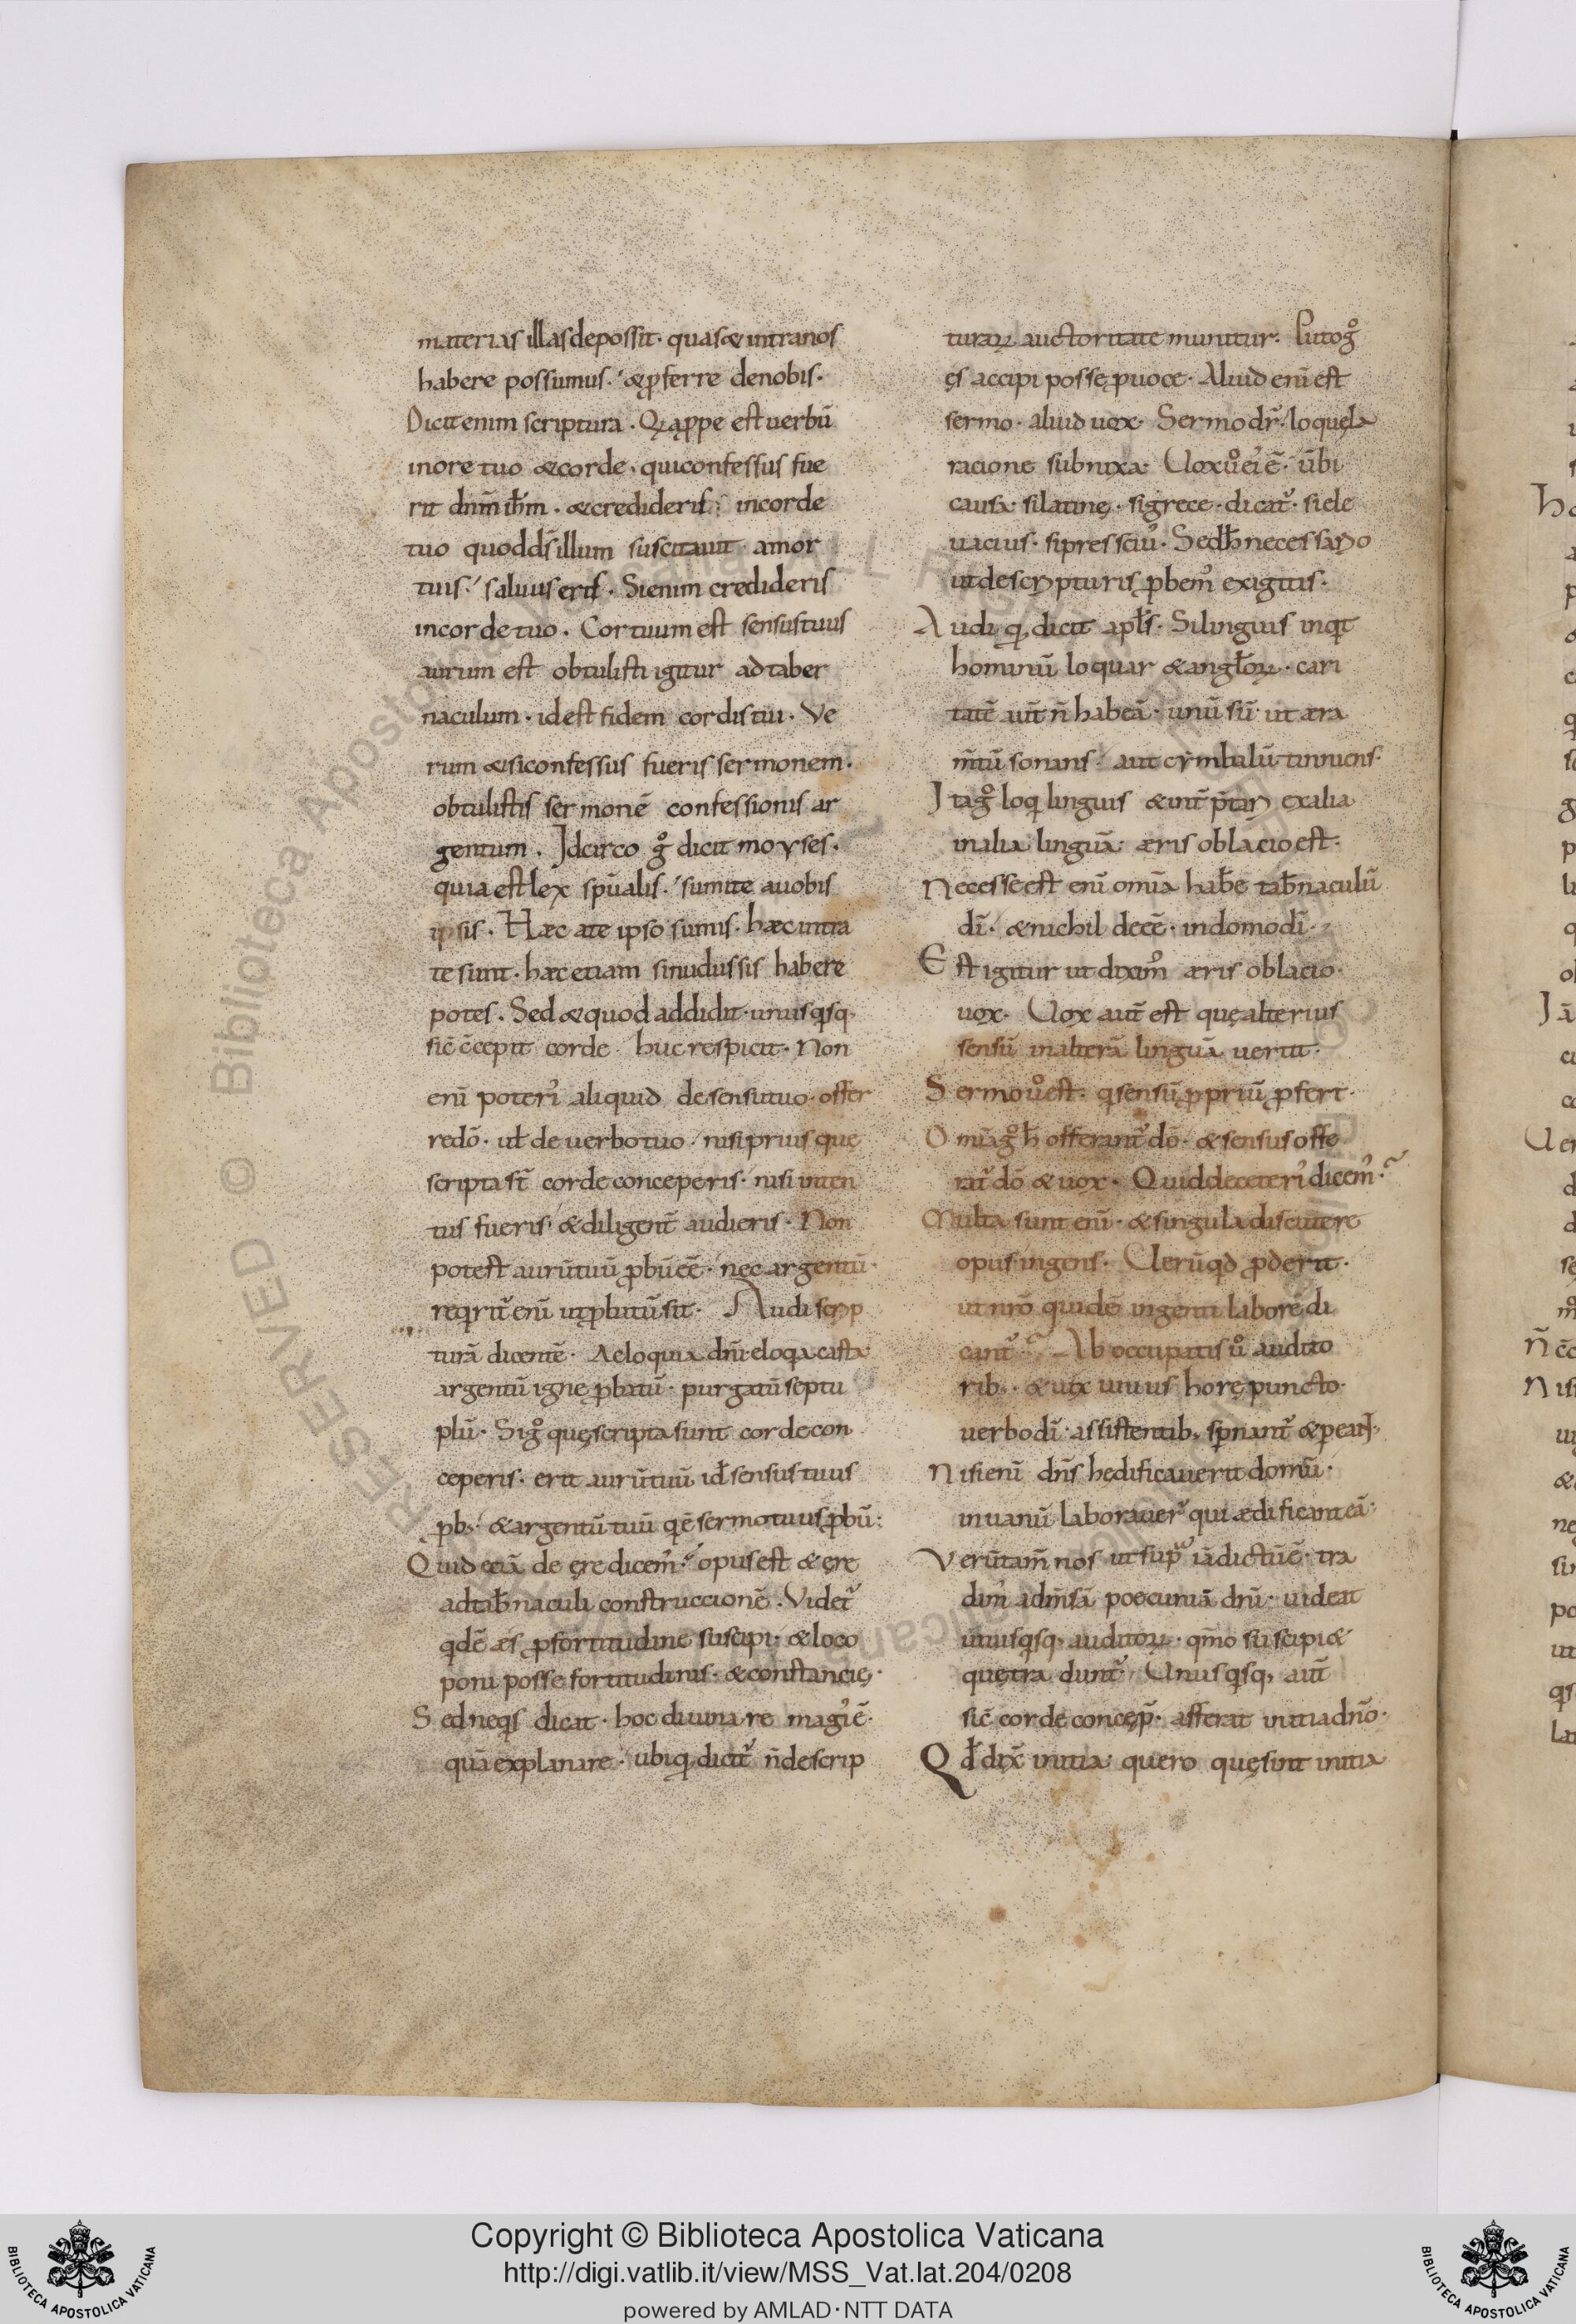 materias illas depossit· quas & intranos
habere possumus·́ & ꝓferre denobis·
Dicit enim scriptura · Qꝛ aꝓpe est uerbū
inore tuo & corde · qui confessus fue
rit dnm̄ ihm̄ · & credideris · incorde
tuo quod ds̄ illum suscitauit amor
tuis·́ saluus eris · Si enim credideris
incorde tuo · Cor tuum est sensus tuus
aurum est obtulisti igitur ad taber
naculum · id est fidem cordis tui · Ve
rum & si confessus fueris sermonem ·
obtulistis sermonē confessionis ar
gentum · Idcirco gͦ dicit moyses ·
quia est lex spūalis·́ sumite auobis
ipsis · Hæc ate ipso sumis · hæc intra
te sunt · hæc etiam sinudus sis habere
potes · Sed & quod addidit · unusqsq,
sic̄ c̄cepit corde huc respicit · Non
enī poteri᾽ aliquid de sensu tuo · offer
re dō · ut̄ de uerbo tuo · nisi prius que
scripta st̄ corde conceperis · nisi inten
tus fueris & diligent̄ audieris · Non
potest aurū tuū ꝓbū eē · nec argentū ·
reqrit᾽ enī ut ꝓbatū sit · Audi scrip
turā dicentē · Aeloquia dn̄i eloqa casta
argentū igne ꝓbatū · purgatū septu
plū · Si gͦ quę scripta sunt corde con
ceperis · erit aurū tuū id̄ sensus tuus
ꝓb; · & argentū tuū q̄ ē sermo tuus ꝓbū :
Quid etiā de ęre dicem᾽ · opus est & ęre
ad tab̄naculi construccionē · Videt᾽
qdē æs ꝓ fortitudine suscipi · & loco
poni posse fortitudinis · & constancię ·
Sed neqs dicat · hoc diuinare magi᾽ ē ·
quā explanare · ubiq, dicit᾽ n̄ descrip
turaꝝ auctoritate munitur · Puto gͦ
ęs accipi posse ꝓ uoce · Aliud enī est
sermo · aliud uox · Sermo dr̄ · loquela
racione subnixa · Uox uͦ ei᾽ ē · ūbi
causa · si latine · si grece · dicat᾽ · si ele
uacius · si pressciu᾽ · Sed h̄ necessario
ut de scripturis ꝓbem᾽ exigitis ·
Audi q, dicit apl̄s · Si linguis inqt
hominū loquar & angl̄oꝝ · cari
tatē aut̄ n̄ habeā · unū sū ut æra
m̄tū sonans · aut cymbalū tinniens ·
Ita gͦ loq linguis & int̄p̄tari ex alia
in alia linguā · æris oblacio est ·
Necesse est enī om̄ia hab̄e tab̄naculū
dī · & nichil deeē · indomo dī ·
Est igitur ut dixim᾽ æris oblacio ·
uox · Uox aut̄ est quę alterius
sensū in alterā linguā uertit ·
Sermo uͦ est · q sensū ꝓpriū ꝓfert ·
Omīa gͦ h̄ offerant᾽ dō · & sensus offe
rat᾽ dō & uox · Quid deceteri᾽ dicem᾽ ·
Multa sunt enī · & singula discutere
opus ingens · Uerū qd ꝓderit ·
ut nr̄o quidē ingenti labore di
cant᾽ · Ab occupatis uͦ audito
rib; · & uix unius horę puncto ·
uerbo dī · assistentib; spnant᾽ & peant ·
Nisi enī dn̄s hedificauerit domū ·
in uanū laborauer᾽ qui ædificant eā ·
Verūtam̄ nos ut sup̄ iā dictū ē · tra
dim᾽ ad m̄sā poecuniā dn̄i · uideat
unusqsq, auditoꝝ · qm̄o suscipi&
quę tradunt᾽ · Unusqsq, aut̄
sic̄ corde concęp̄ · afferat initia dn̄o ·
Qd̄ dix̄ initia · quero quę sint initia
Copyright © Biblioteca Apostolica Vaticana
http://digi.vatlib.it/view/MSS_Vat.lat.204/0208
powered by AMLAD·NTT DATA
BIBLIOTECA APOSTOLICA VATICANA
BIBLIOTECA APOSTOLICA VATICANA